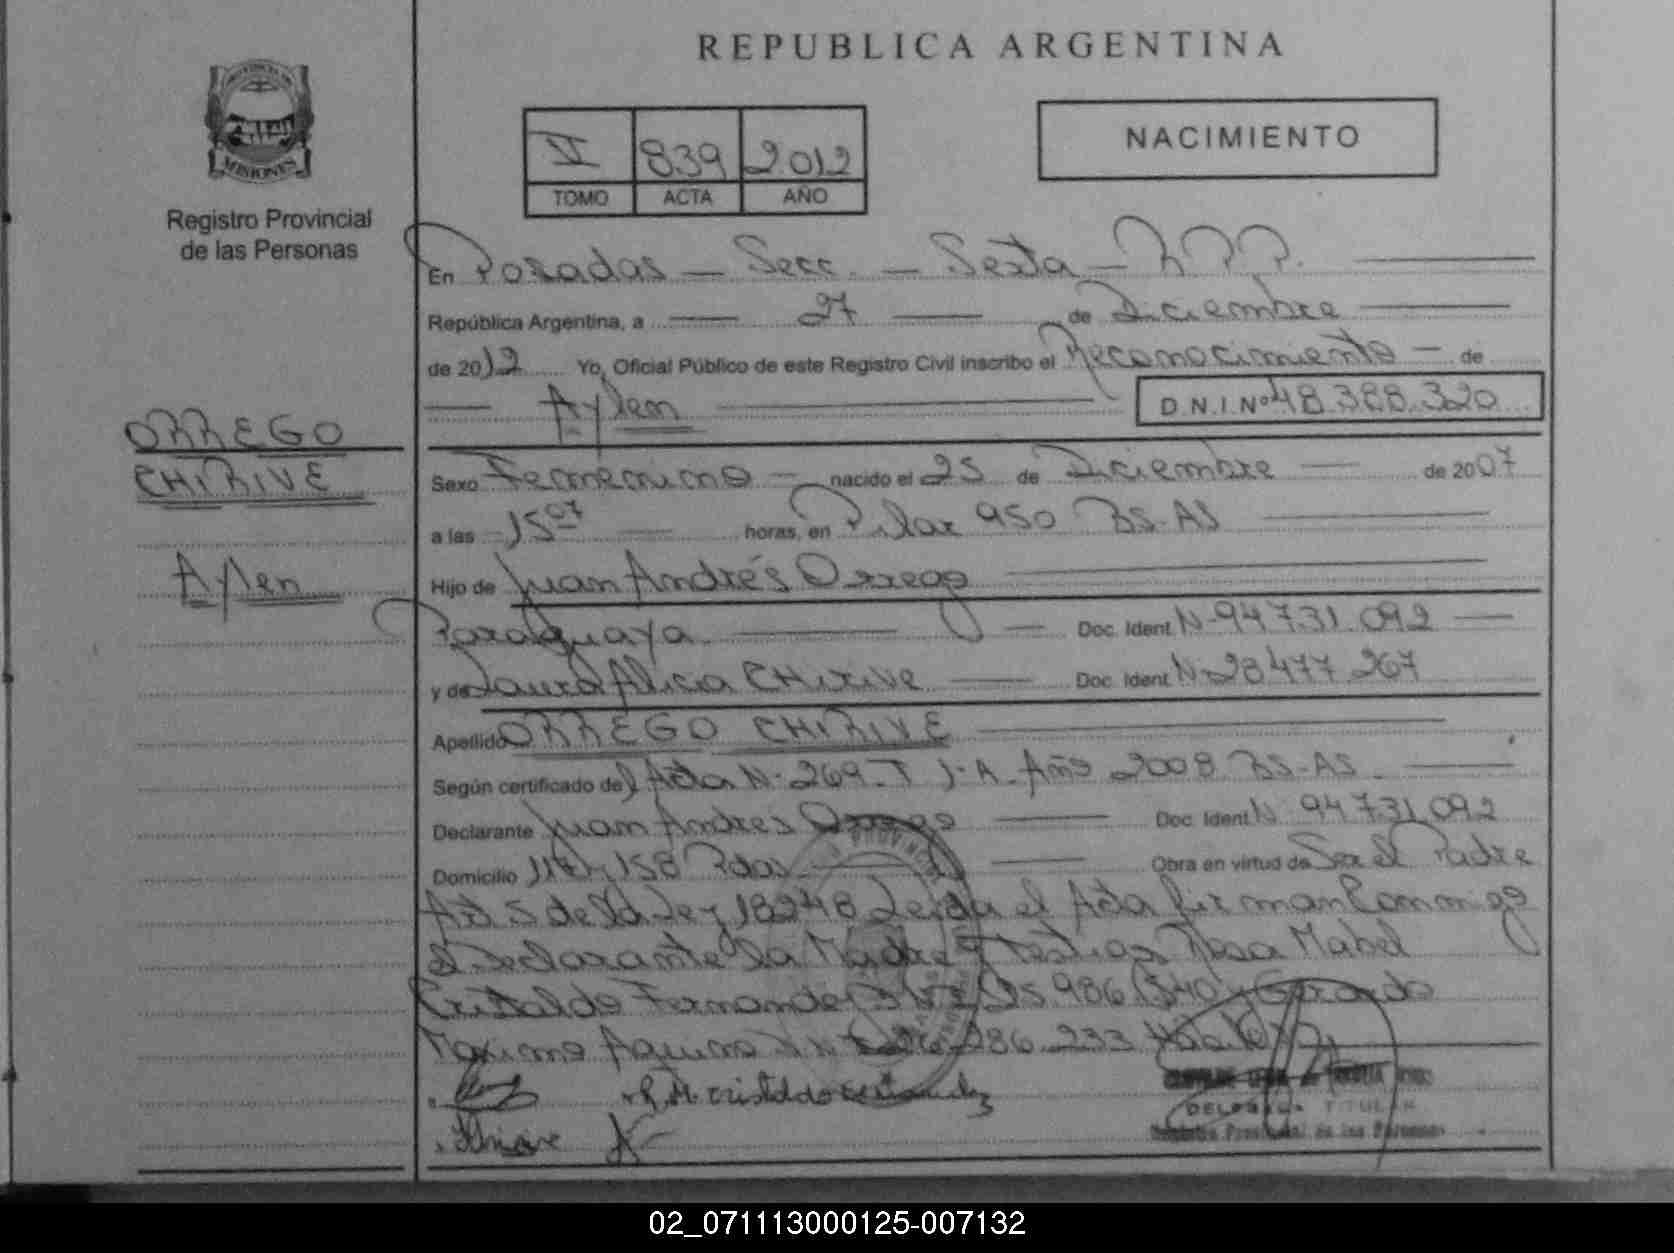 REPUBLICA ARGENTINA
PROVINCIA DE
MISIONES
Registro Provincial
de las Personas
VI 839 2012
TOMO ACTA AÑO
NACIMIENTO
En Posadas - Secc. - Sexta - R.P.P.
República Argentina, a 27 de Diciembre
de 2012 Yo, Oficial Público de este Registro Civil inscribo el Reconocimiento - de
Aylen D.N.I.Nº 48.388.320
ORREGO
CHIRIVE
Aylen
Sexo Femenino - nacido el 25 de Diciembre de 2007
a las 15 07 horas, en Pilar 950 BS-AS
Hijo de Juan Andrés Orrego
Paraguaya Doc. Ident. N-94.731.092
y de Laura Alicia CHIRIVE Doc. Ident. N-28477.267
Apellido ORREGO CHIRIVE
Según certificado del Acta N-269-T 1-A-Año 2008 BS-AS.
Declarante Juan Andres Orrego Doc. Ident. N 94.731.092
Domicilio 158 Pdas Obra en virtud de Ser el Padre
Art 5 de la Ley 18248 Leida el Acta firman conmigo
el Declarante la Madre y testigos Rosa Mabel
Cristaldo Fernandez y Gerardo
Maximo Aquino 286.233
R.M. Cristaldo Fernandez
Chirive
DELEGADA TITULAR
Registro Provincial de las Personas
02_071113000125-007132